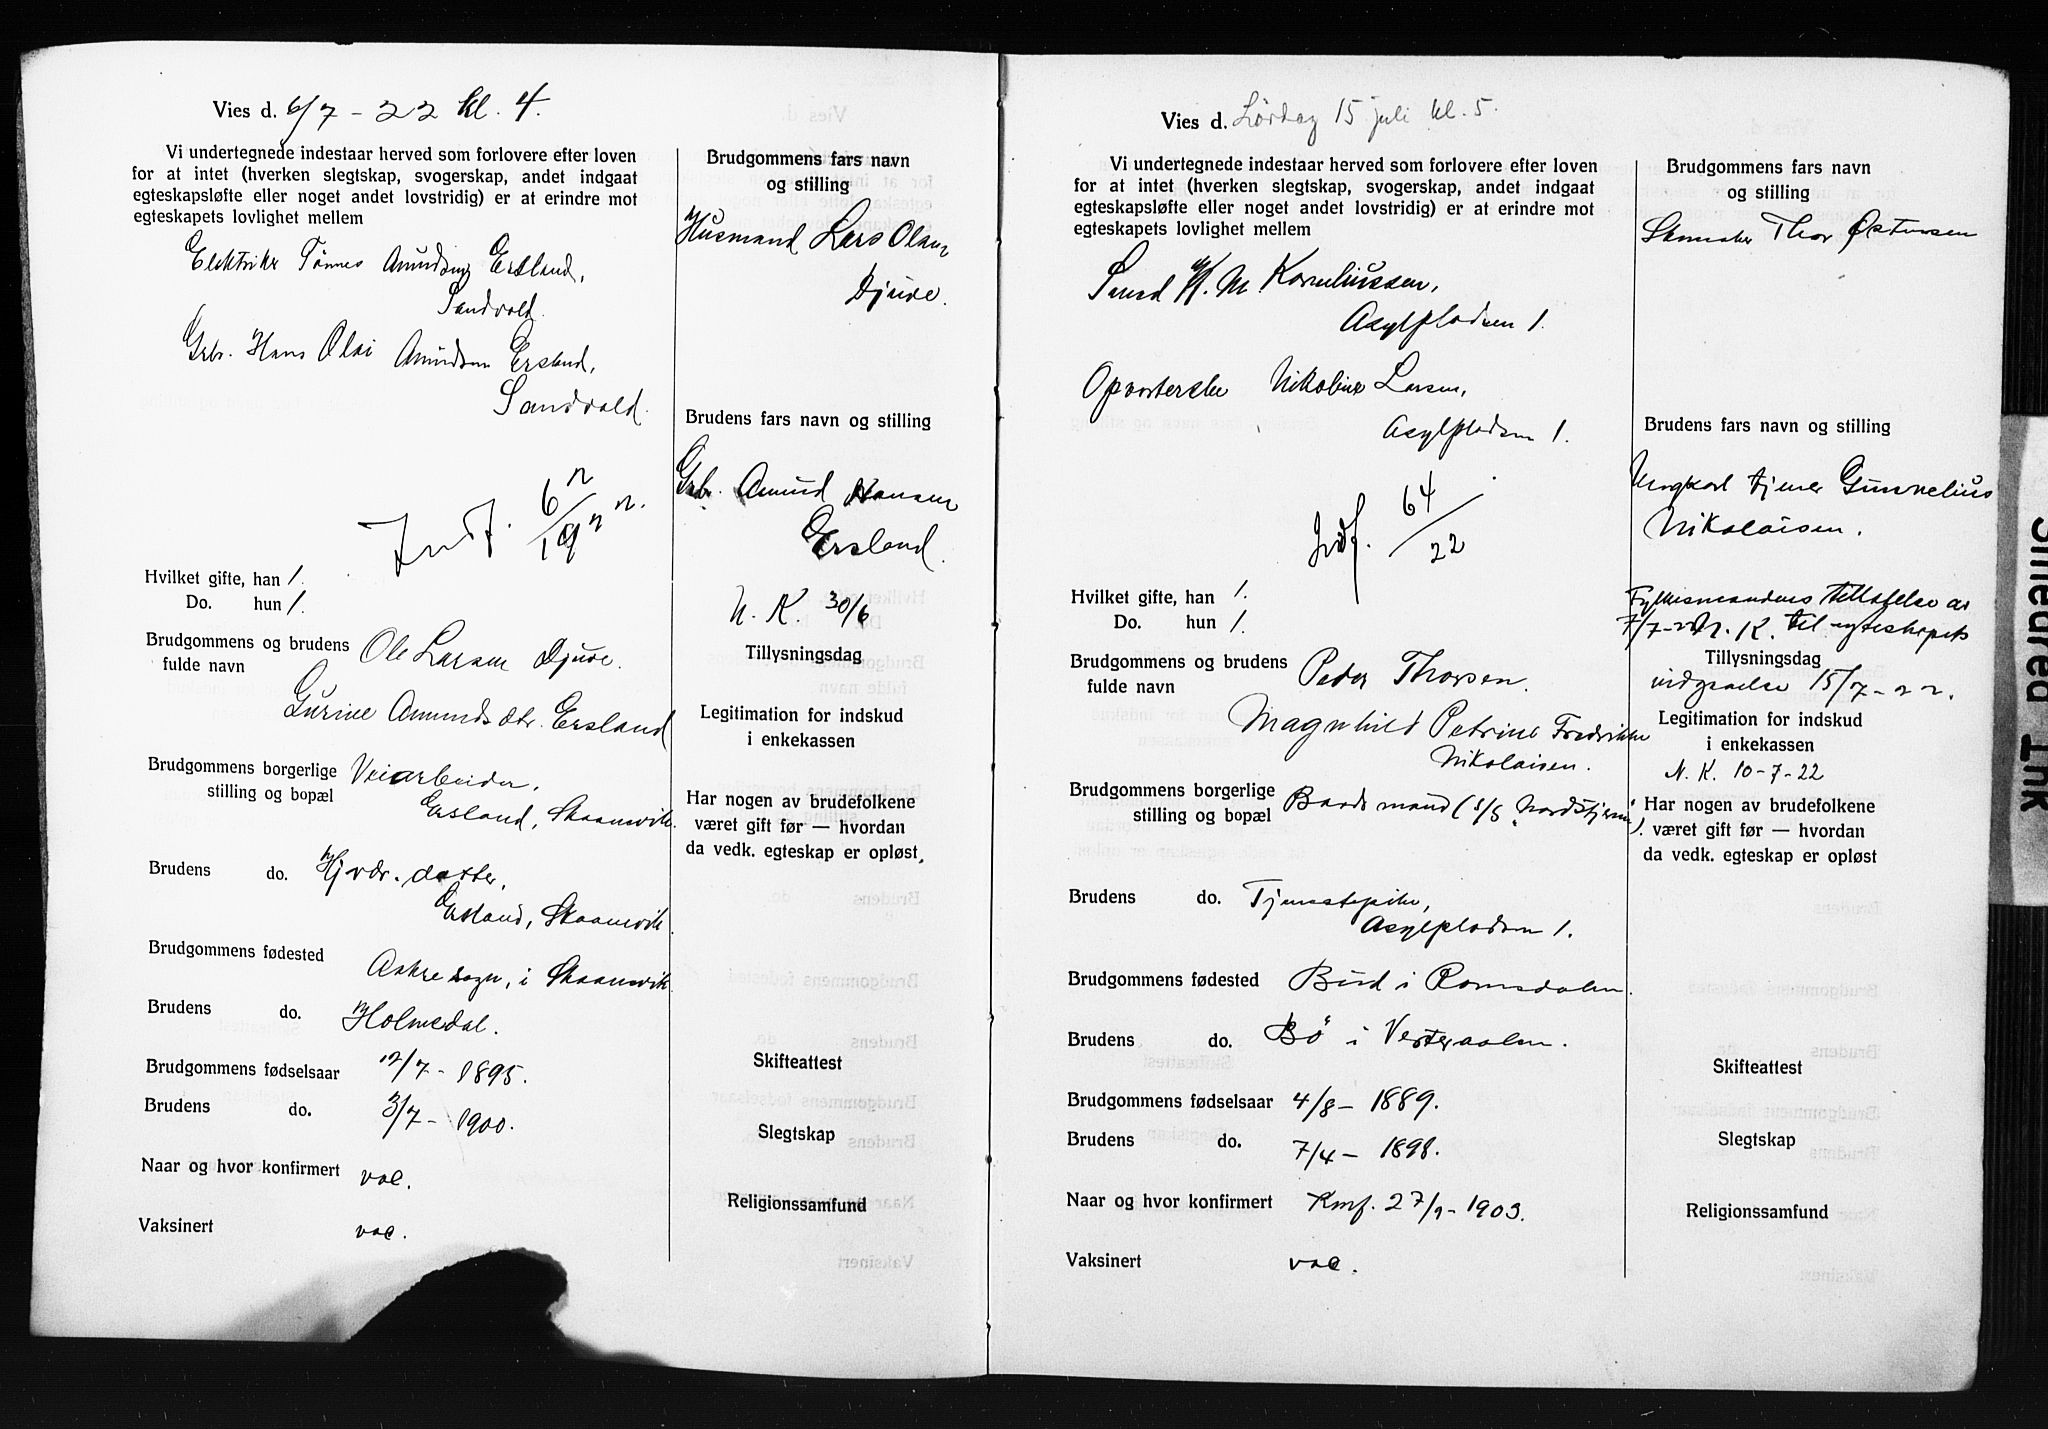 Vies d. 6/7 - 22 kl. 4.
Vi undertegnede indestaar herved som forlovere efter loven
for at intet (hverken slegtskap, svogerskap, andet indgaat
egteskapsløfte eller noget andet lovstridig) er at erindre mot
egteskapets lovlighet mellem
Elektriker Tønnes Amundsen Ersland,
Sandvold.
Grbr. Hans Olai Amundsen Ersland,
Sandvold.
Indf. 6/1922.
Hvilket gifte, han 1.
Do. hun 1.
Brudgommens og brudens
fulde navn
Ole Larsen Djuve.
Gurine Amundsdtr. Ersland
Brudgommens borgerlige
stilling og bopæl
Veiarbeider,
Ersland, Skaanevik.
Brudens do. Hjvær. datter,
Ersland, Skaanevik.
Brudgommens fødested
Aakre sogn, i Skaanevik
Brudens do. Holmedal.
Brudgommens fødselsaar 12/7 - 1895.
Brudens do. 3/7 - 1900.
Naar og hvor konfirmert
Vaksinert
Brudgommens fars navn
og stilling
Husmand Lars Olsen
Djuve.
Brudens fars navn og stilling
Grb. Amund Hansen
Ersland.
N. K. 30/6
Tillysningsdag
Legitimation for indskud
i enkekassen
Har nogen av brudefolkene
været gift før — hvordan
da vedk. egteskap er opløst
Skifteattest
Slegtskap
Religionssamfund
Vies d. Lördag 15 juli kl. 5.
Vi undertegnede indestaar herved som forlovere efter loven
for at intet (hverken slegtskap, svogerskap, andet indgaat
egteskapsløfte eller noget andet lovstridig) er at erindre mot
egteskapets lovlighet mellem
Smed H. M. Korneliussen,
Asylpladsen 1.
Opvarterske Nikoline Larsen,
Asylpladsen 1.
Indf. 64/22
Hvilket gifte, han 1.
Do. hun 1.
Brudgommens og brudens
fulde navn
Peder Thorsen.
Magnhild Petrine Fredrikke
Nikolaisen.
Brudgommens borgerlige
stilling og bopæl
Baadsmand (s/s "Nordstjernen").
Brudens do. Tjenestepike,
Asylpladsen 1.
Brudgommens fødested Bud i Romsdalen.
Brudens do. Bö i Vesteraalen.
Brudgommens fødselsaar 4/8 - 1889.
Brudens do. 7/4 - 1898.
Naar og hvor konfirmert Kmf. 27/9 - 1903.
Vaksinert
Brudgommens fars navn
og stilling
Skomaker Thor Østensen
Brudens fars navn og stilling
Ungkarl tjener Gunnelius
Nikolaisen.
Fylkesmandens tillatelse av
7/7-22 N. K. til egteskapets
Tillysningsdag
indgaaelse 15/7-22.
Legitimation for indskud
i enkekassen
N. K. 10-7-22
Har nogen av brudefolkene
været gift før — hvordan
da vedk. egteskap er opløst
Skifteattest
Slegtskap
Religionssamfund